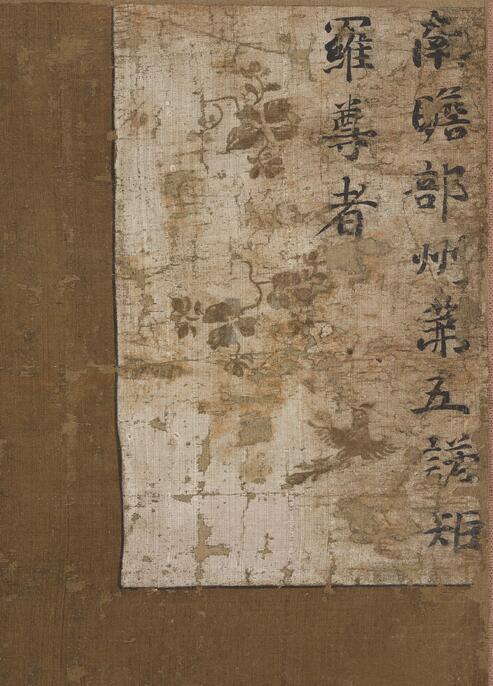 南瞻部州苐五諾矩
羅尊者